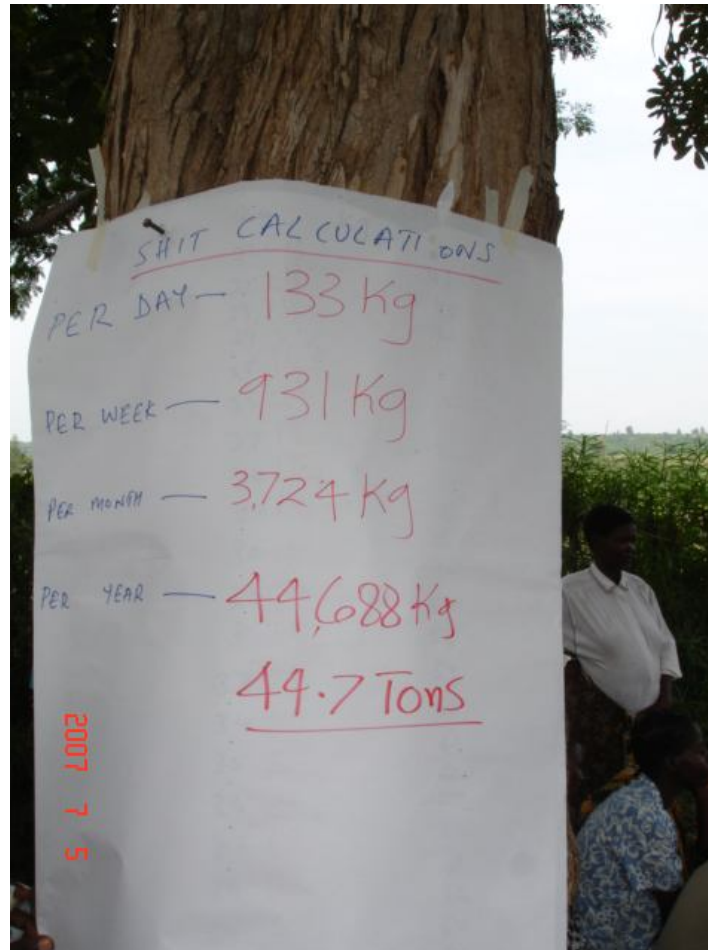 SHIT CALCULATIONS
PER DAY — 133 Kg
PER WEEK — 931 Kg
PER MONTH — 3,724 Kg
PER YEAR — 44,688 Kg
44.7 Tons
2007 7 5